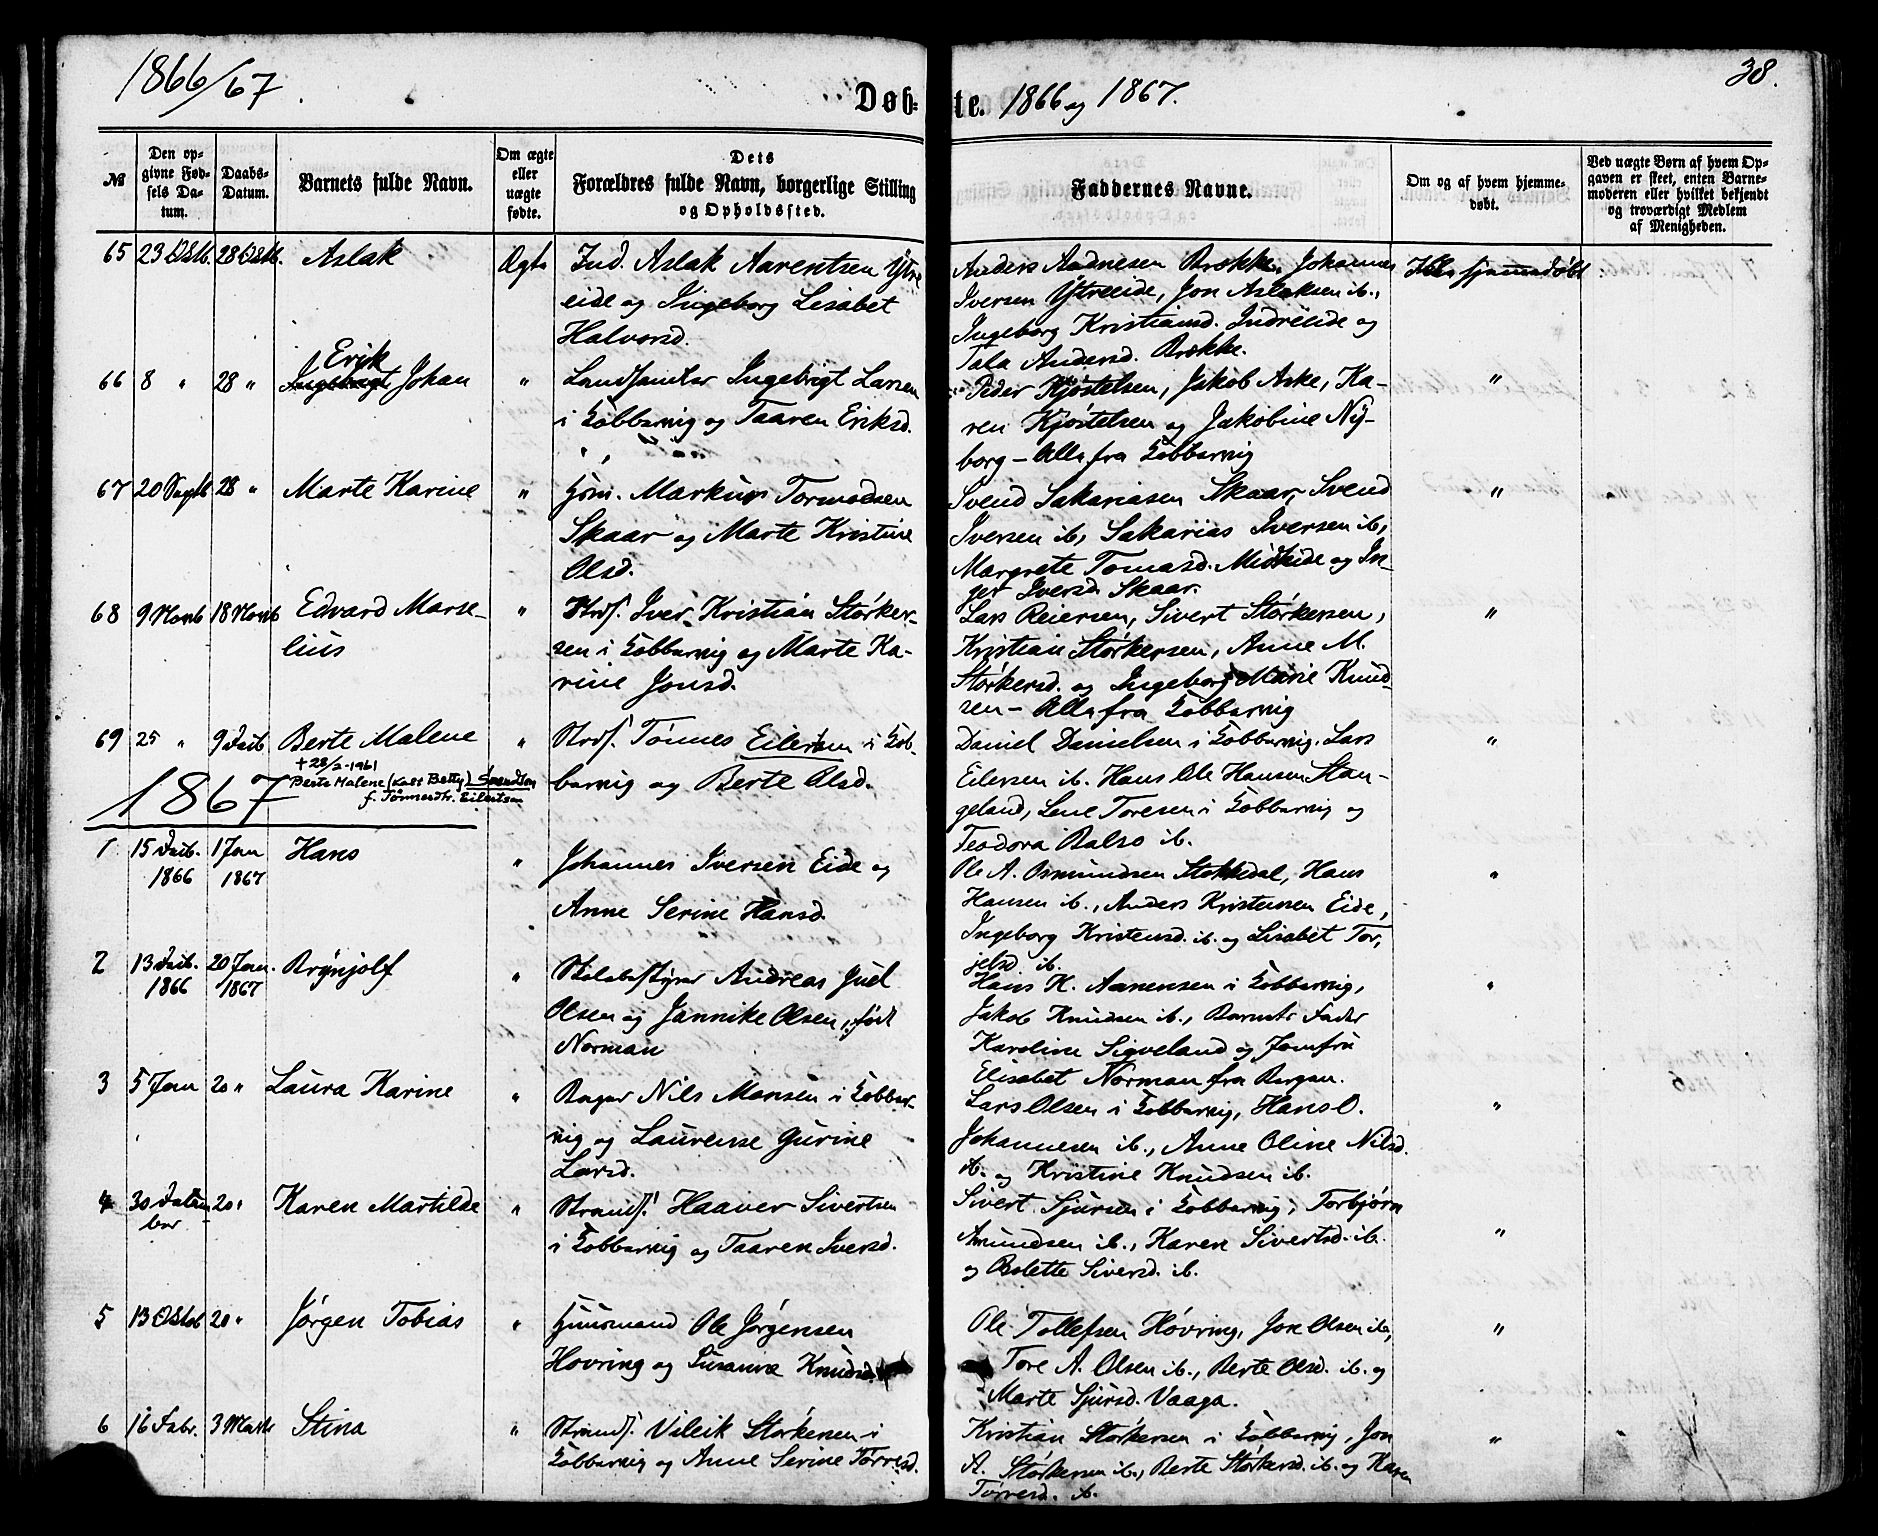 1866/67.
Døb-
te. 1866 og 1867.
38.
№
Den op-
givne Fød-
sels Da-
tum.
Daabs-
Datum.
Barnets fulde Navn.
Om ægte
eller
uægte
fødte.
Dets
Forældres fulde Navn, borgerlige Stilling
og Opholdssted.
Faddernes Navne.
Om og af hvem hjemme-
døbt.
Ved uægte Børn af hvem Op-
gaven er skeet, enten Barne-
moderen eller hvilket bekjendt
og troværdigt Medlem
af Menigheden.
65 23 Oktb. 28 Oktb. Aslak Ægte Ind. Aslak Aarentsen Ytre
eide og Ingeborg Lisabet
Halvorsd.
Anders Andnesen Brokke, Johannes
Iversen Ytreeide, Jon Aslaksen ib.,
Ingeborg Kristiansd. Indreeide og
Tala Andersd. Brokke.
Ikke hjemmedøbt
Erik
66 8 " 28 " Ingebrigt Johan " Landhandler Ingebrigt Larsen
i Kobbervig og Taaren Eriksd.
Peder Kjøstelsen, Jakob Aske, Ka-
ren Kjøstelsen og Jakobine Ny-
borg – Alle fra Kobbervig
"
67 20 Septb 28 " Marte Karine " Hsm. Markus Tormodsen
Skaar og Marte Kristine
Olsd.
Svend Sakariasen Skaar, Svend
Iversen ib, Sakarias Iversen ib,
Margrete Tomasd. Mideide og In-
ger Iversd Skaar.
"
68 9 Novb 18 Novb Edvard Marse-
lius
" Strds. Iver Kristian Størker-
sen i Kobbervig og Marte Ka-
rine Jonsd.
Lars Reiersen, Sivert Størkersen,
Kristian Størkersen, Anne M.
Størkersd. og Ingeborg Marie Knud-
sen – Alle fra Kobbervig
"
69 25 " 9 Decb Berte Malene " Strds. Tønnes Eilersen i Kob-
bervig og Berte Olsd.
Daniel Danielsen i Kobbervig, Lars
Eilersen ib. Hans Ole Hansen Stan-
geland, Lene Toresen i Kobbervig og
Teodora Balso ib.
"
+28/2-1961
Berte Malene (kalt Betty) Svendsen
f. Tønnesdtr. Eilertsen
1867
1 15 Decb. 1 Jan Hans " Johannes Iversen Eide og
1866 1867
Anne Serine Hansd.
Ole A. Osmundsen Stokkedal, Hans
Hansen ib., Anders Kristensen Eide,
Ingeborg Kristensd. ib. og Lisabet Tor-
jelsd ib.
"
2 13 Decb. 20 Jan. Brynjolf " Skolebestyrer Andreas Juel
1866 1867
Olsen og Jannike Olsen, født
Norman
Hans H. Aanensen i Kobbervig,
Jakob Knudsen ib., Barnets Fader
Karoline Sigveland og Jomfru
Elisabet Norman fra Bergen.
"
3 5 Jan 20 " Laura Karine " Bager Nils Monsen i Kobber-
vig og Laurense Gurine
Larsd.
Lars Olsen i Kobbervig, Hans O.
Johannesen ib., Anne Oline Nilsd.
ib. og Kristine Knudsen ib.
"
4 30 Decem 20 " Karen Martilde " Strands. Haaver Sivertsen
ber
i Kobbervig og Taaren Iversd.
Sivert Sjursen i Kobbervig, Torbjørn
Amundsen ib., Karen Sivertsd. ib.
og Bolette Siversd. ib.
"
5 13 Oktob 20 " Jørgen Tobias " Huusmand Ole Jørgensen
Hovring og Susanne Knudsd.
Ole Tollefsen Høvring, Jon Olsen ib,
Tore A. Olsen ib., Berte Olsd. ib. og
Marte Sjursd. Vaaga.
"
6 16 Febr. 3 Marts Stina " Strands. Valevik Størkersen i
Kobbervig og Anne Serine Torresd.
Kristian Størkersen i Kobbervig, Jon
A. Størkersen ib., Berte Størkersd. ib. og Karen
Torresd. ib.
"